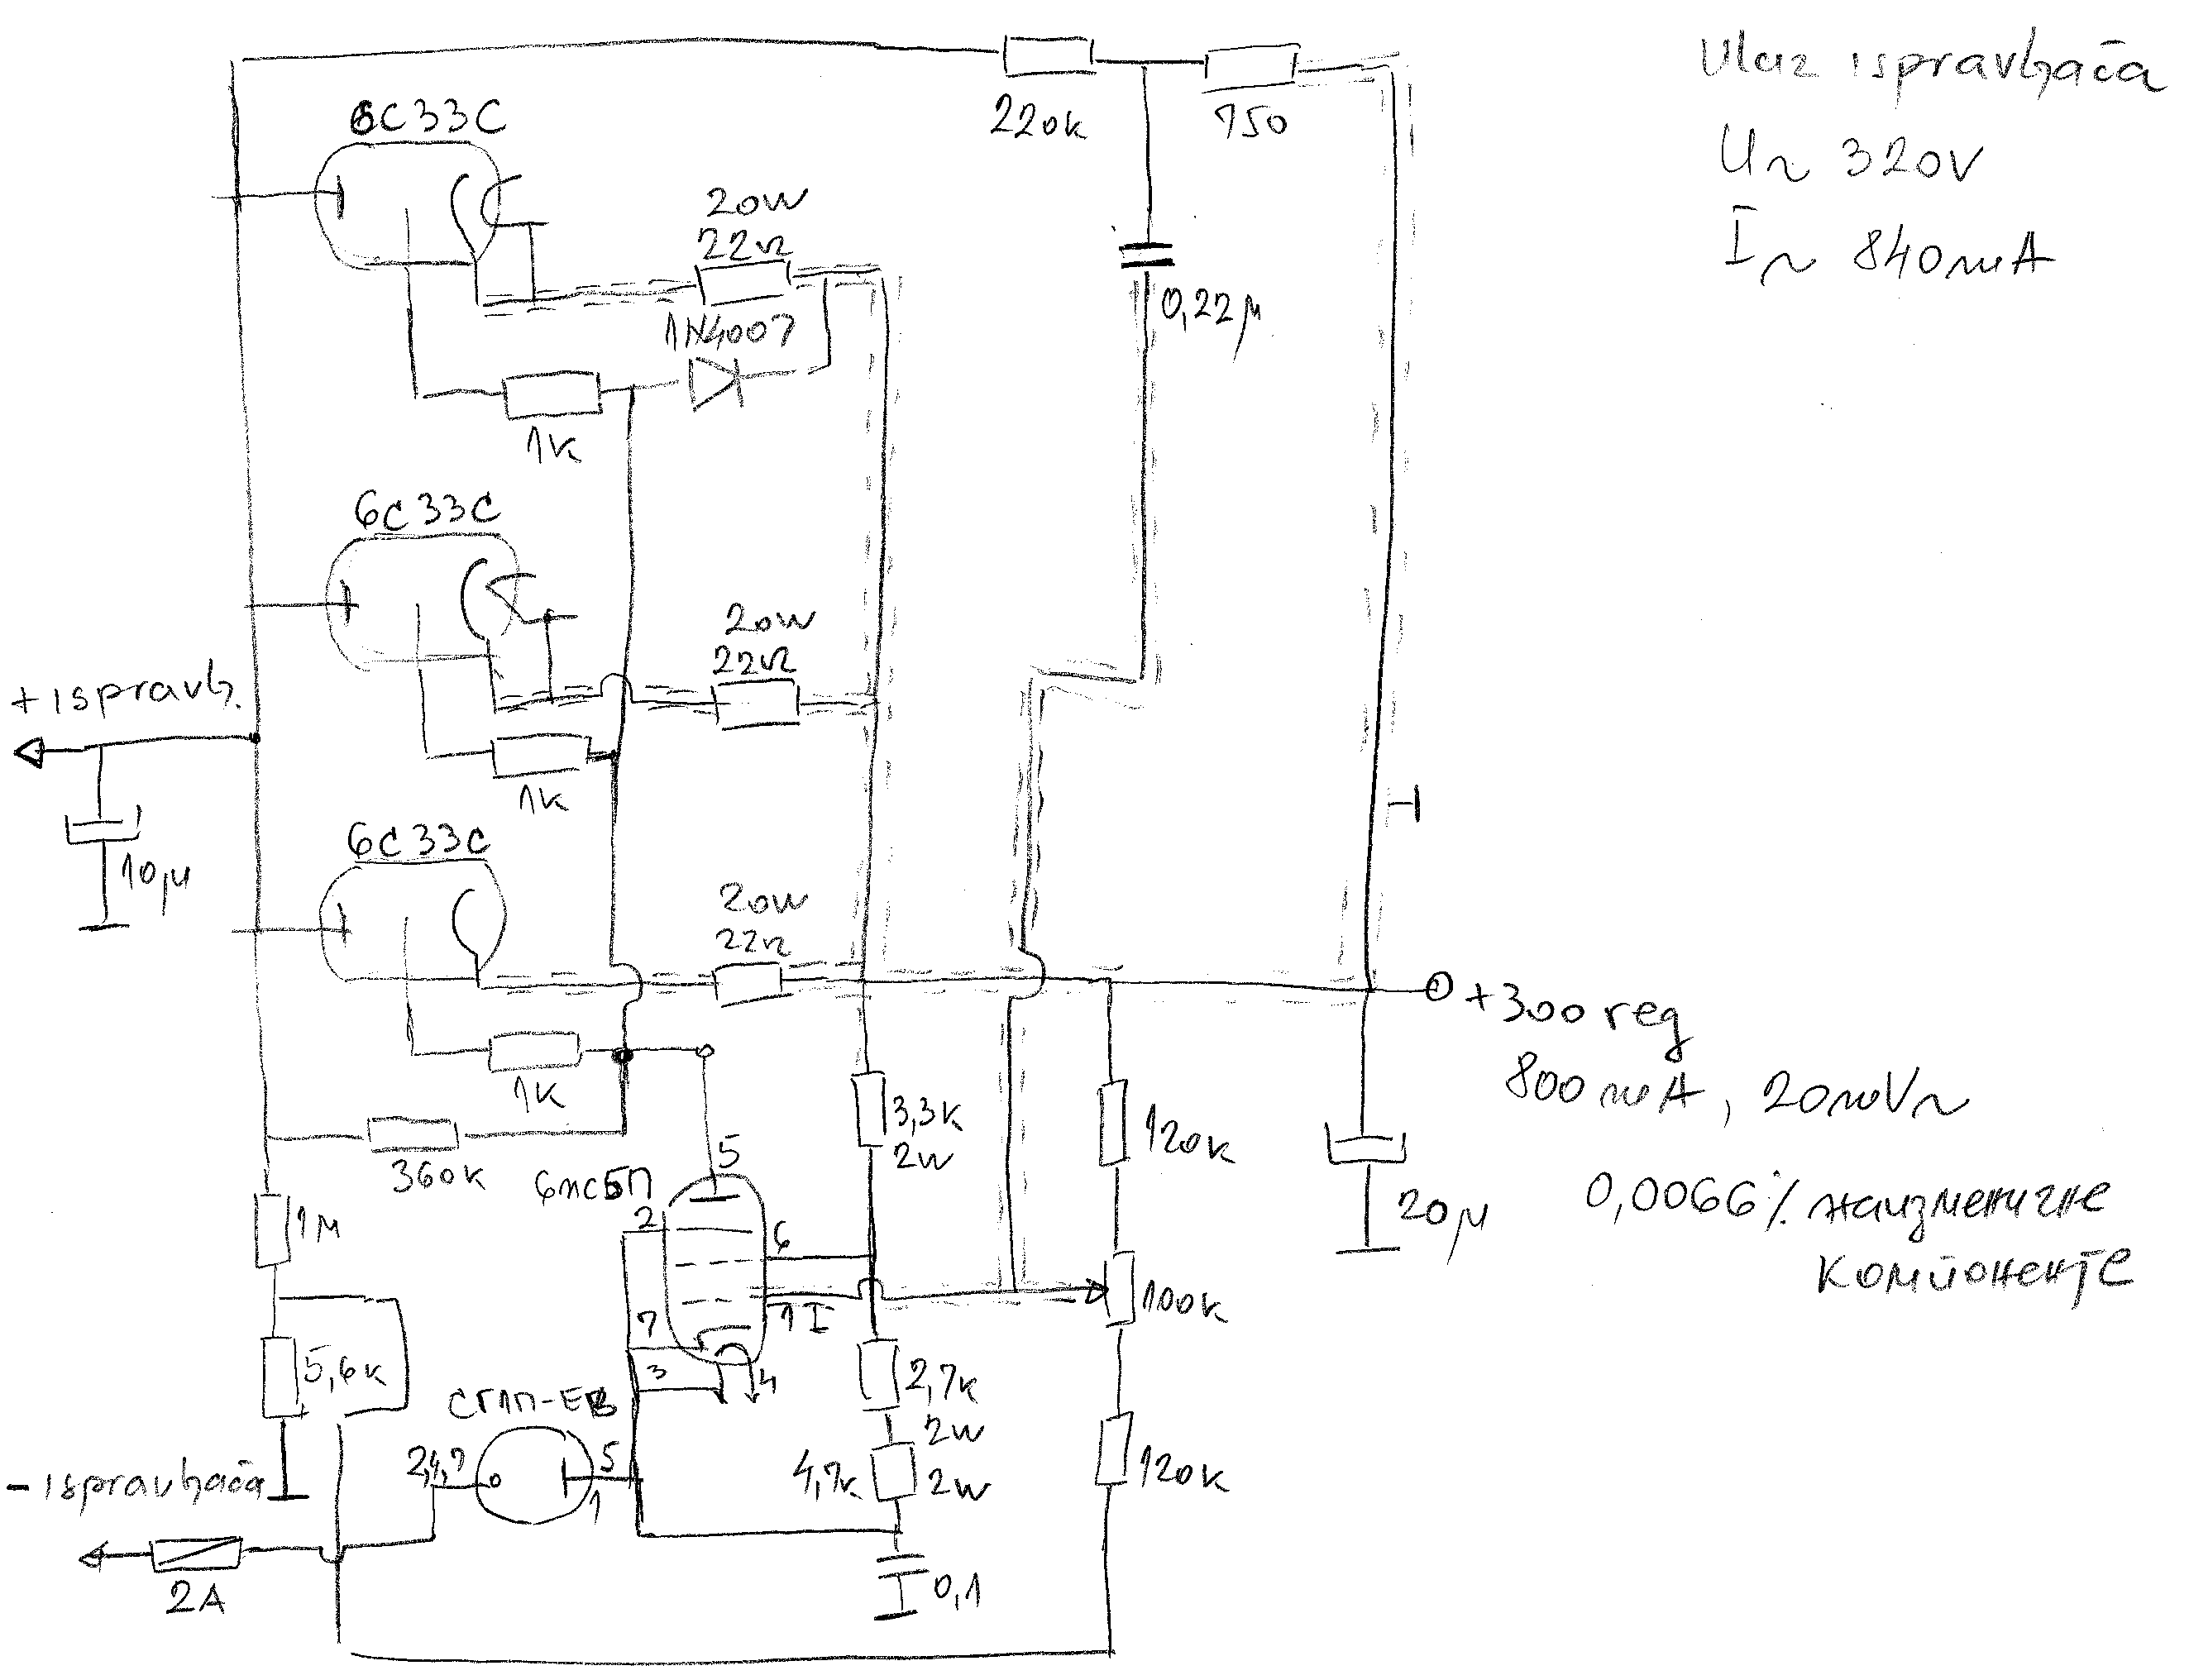 Ulaz ispravljača
U~ 320V
I~ 840mA
6C33C
220k
750
20W
22Ω
0,22μ
1N4007
1k
6C33C
20W
22Ω
+ispravlj.
1k
10μ
6C33C
20W
22Ω
1k
+300 reg
800mA, 20mV~
0,0066% наизменичне
компоненте
3,3k
2W
120k
20μ
360k
5
2
6
7
1
3
4
100k
1M
5,6k
2,7k
2W
4,7k
2W
120k
2,4,7
5
1
- ispravljača
2A
0,1